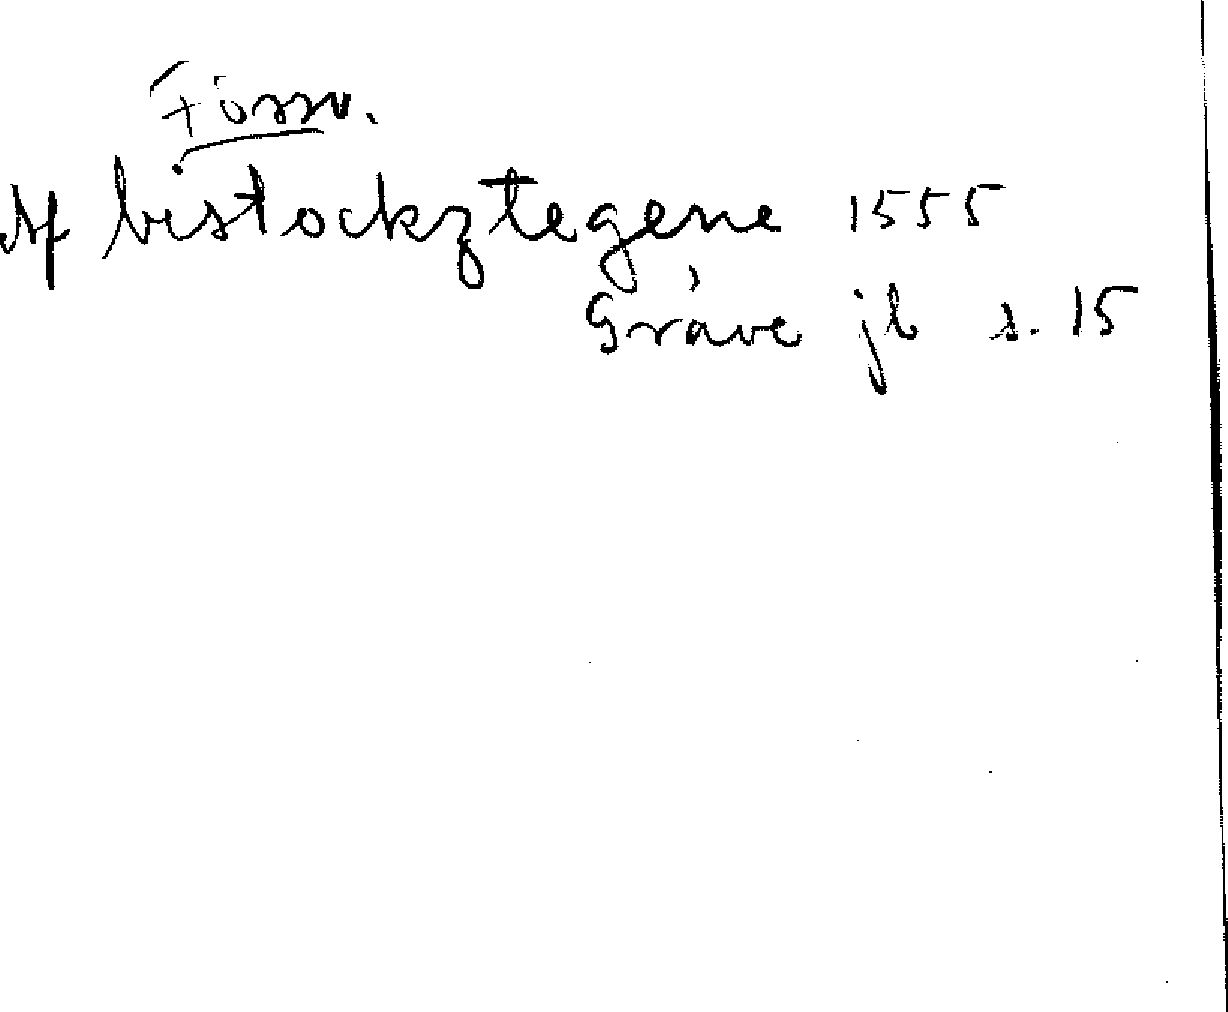 Försv.
Af bistockztegene 1555
Gråve jb s. 15